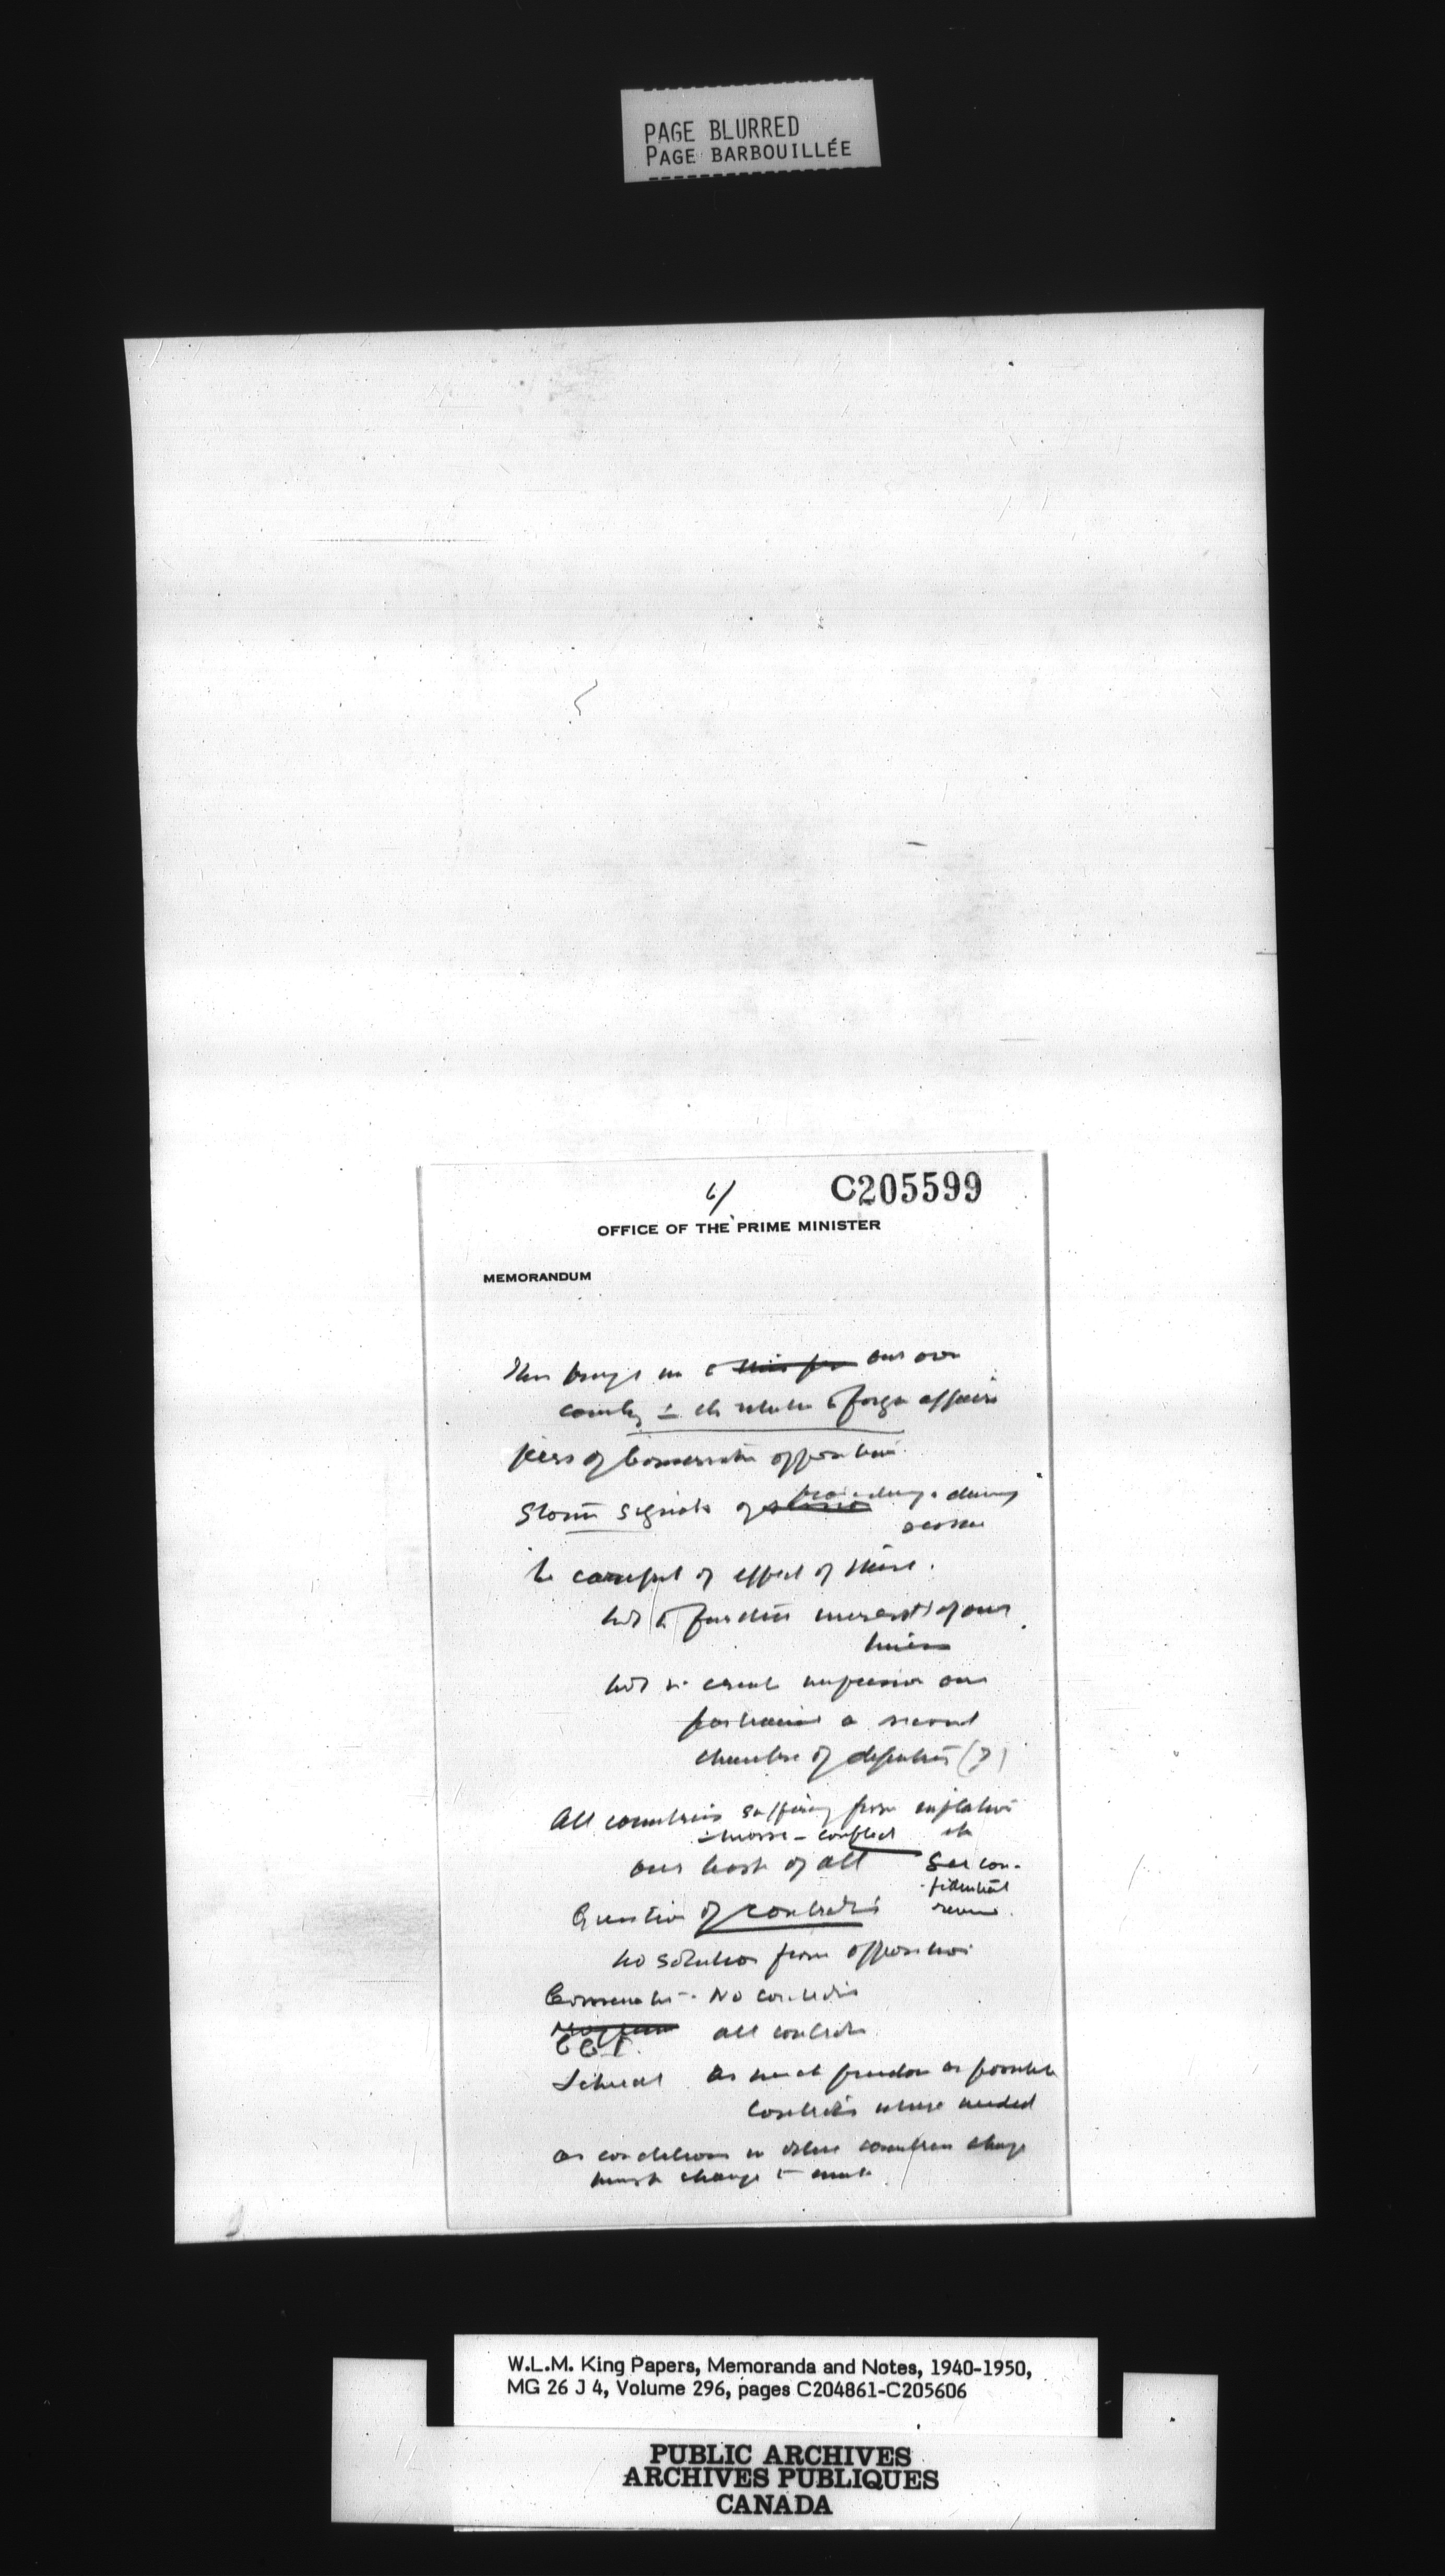 PAGE BLURRED
PAGE BARBOUILLÉE
6/ C205599
OFFICE OF THE PRIME MINISTER
MEMORANDUM
This brings us to our own
country in its relation to foreign affairs
of Conservative opposition
Storm signals of
be careful of effect of these.
not to further interests of our
not to create impression our
a second
chamber of deputies (?)
All countries suffering from inflation
conflict etc
our least of all See con-
fidential
Question of controls
no solution from opposition
Conservatives - No controls
CCF. all controls
Liberal As much freedom as possible
Controls where needed
as conditions in other countries change
must change to meet
W.L.M. King Papers, Memoranda and Notes, 1940-1950,
MG 26 J 4, Volume 296, pages C204861-C205606
PUBLIC ARCHIVES
ARCHIVES PUBLIQUES
CANADA